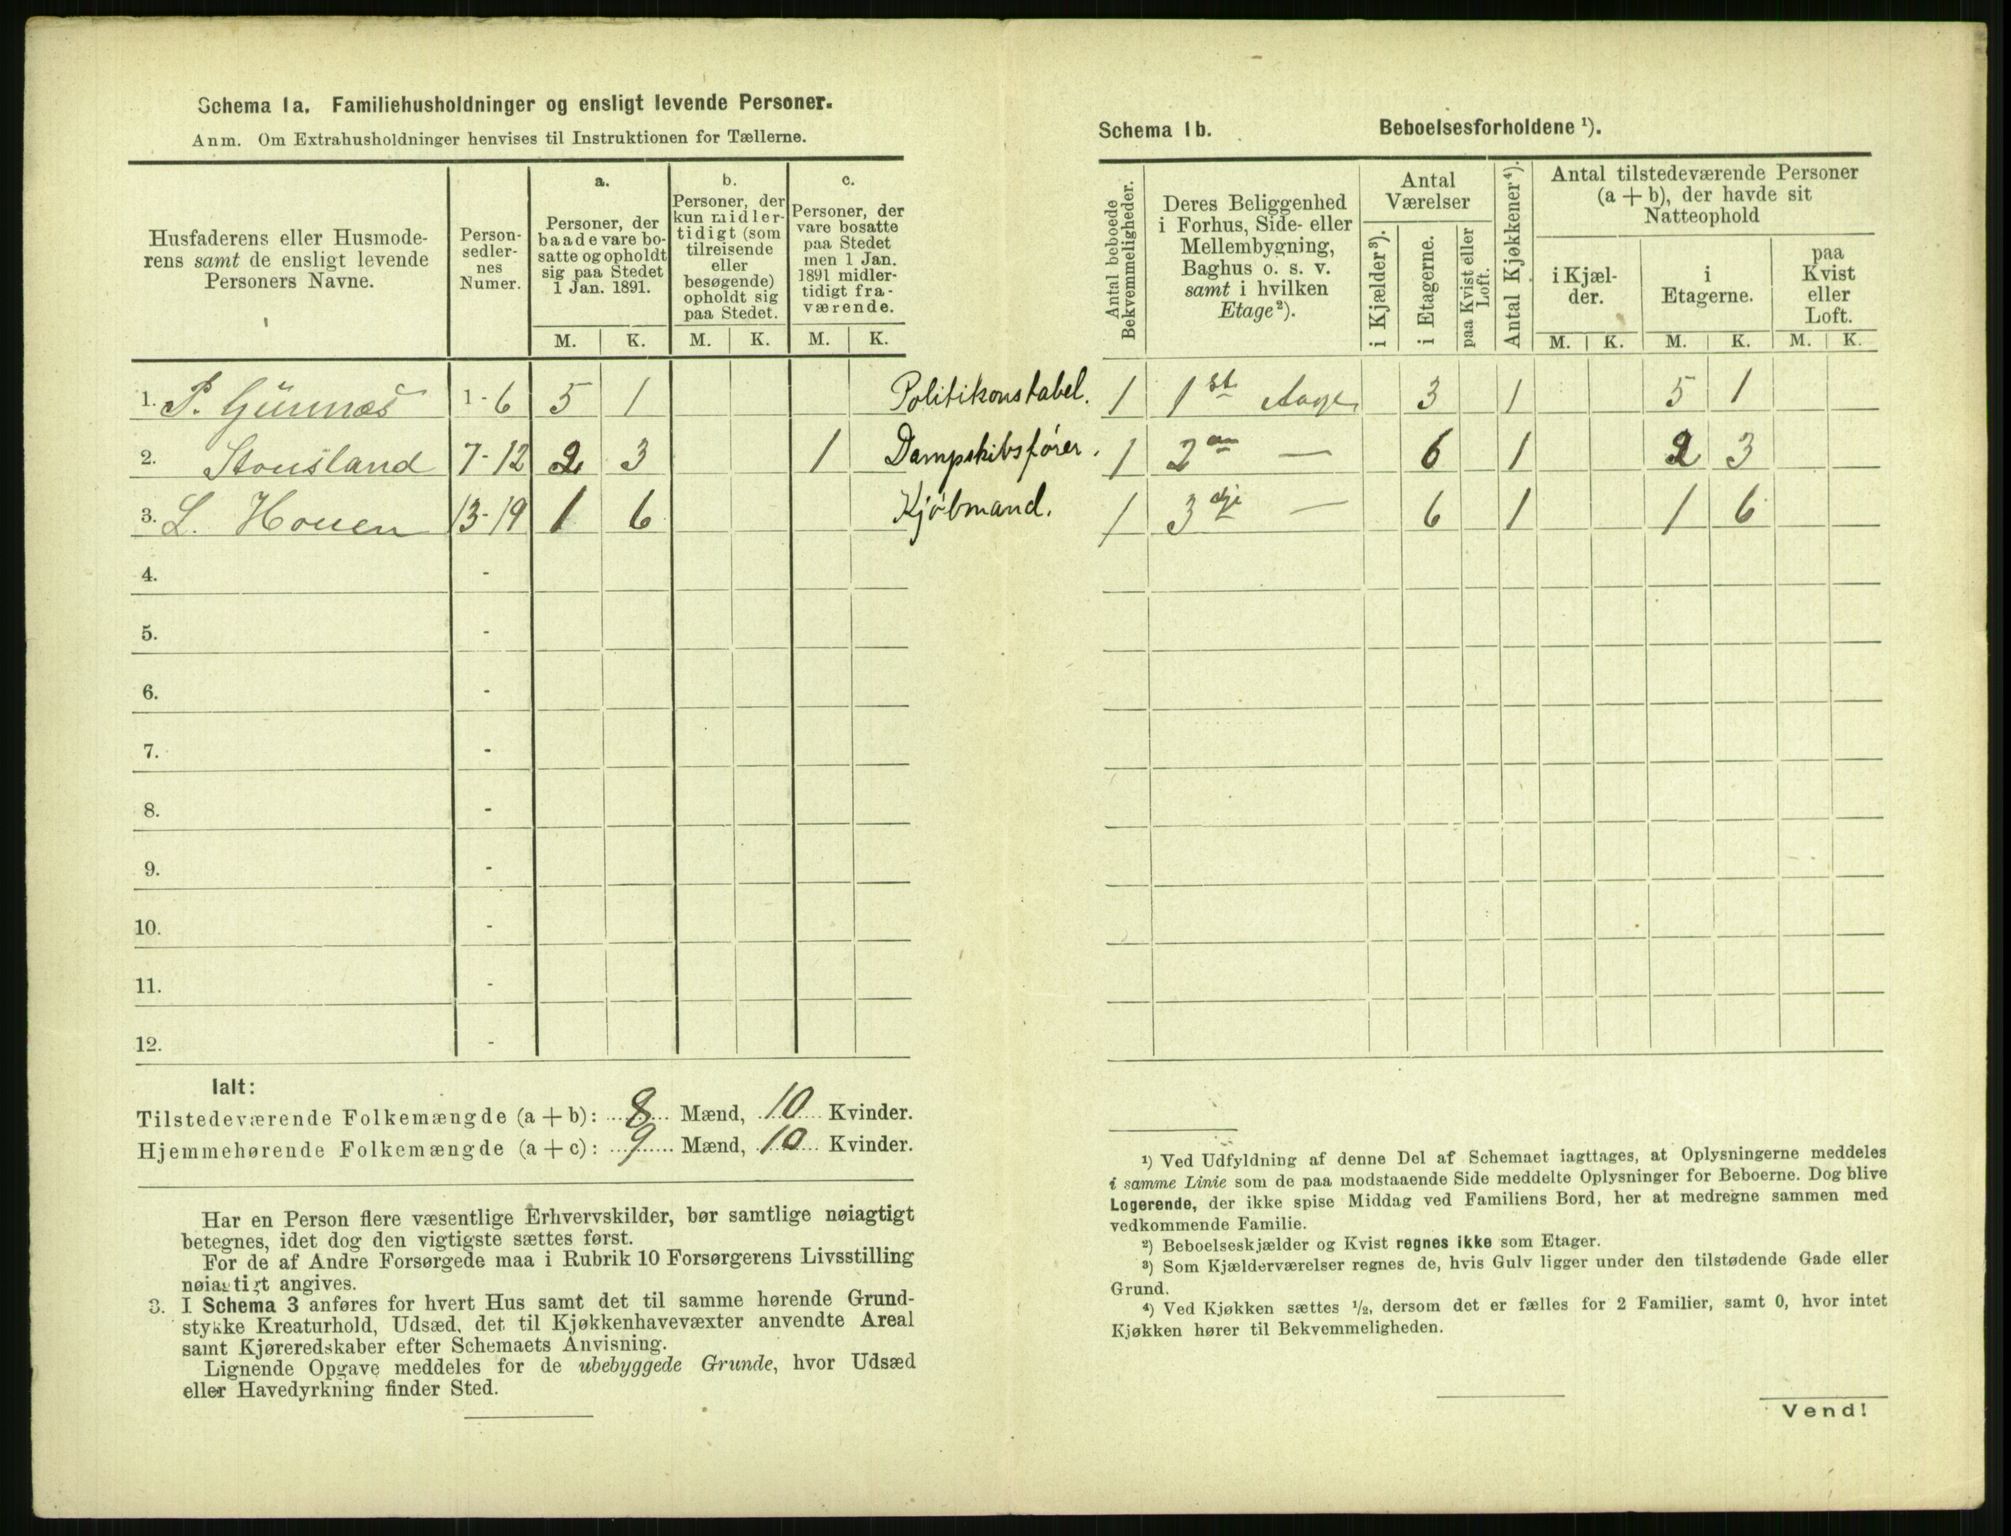 Schema 1a. Familiehusholdninger og ensligt levende Personer.
Anm. Om Extrahusholdninger henvises til Instruktionen for Tællerne.
Husfaderens eller Husmode-
rens samt de ensligt levende
Personers Navne.
Person-
sedler-
nes
Numer.
a.
Personer, der
baade vare bo-
satte og opholdt
sig paa Stedet
1 Jan. 1891.
b.
Personer, der
kun midler-
tidigt (som
tilreisende
eller
besøgende)
opholdt sig
paa Stedet.
c.
Personer, der
vare bosatte
paa Stedet
men 1 Jan.
1891 midler-
tidigt fra-
værende.
M. K. M. K. M. K.
1. P. Gunnæs 1-6 5 1 Politikonstabel.
2. Stousland 7-12 2 3 1 Dampskibsfører.
3. L. Houen 13-19 1 6 Kjøbmand.
4. -
5. -
6. -
7. -
8. -
9. -
10. -
11. -
12. -
Ialt:
Tilstedeværende Folkemængde (a + b): 8 Mænd, 10 Kvinder.
Hjemmehørende Folkemængde (a + c): 9 Mænd, 10 Kvinder.
Har en Person flere væsentlige Erhvervskilder, bør samtlige nøiagtigt
betegnes, idet dog den vigtigste sættes først.
For de af Andre Forsørgede maa i Rubrik 10 Forsørgerens Livsstilling
nøiagtigt angives.
3. I Schema 3 anføres for hvert Hus samt det til samme hørende Grund-
stykke Kreaturhold, Udsæd, det til Kjøkkenhavevæxter anvendte Areal
samt Kjøreredskaber efter Schemaets Anvisning.
Lignende Opgave meddeles for de ubebyggede Grunde, hvor Udsæd
eller Havedyrkning finder Sted.
Schema 1b. Beboelsesforholdene ¹).
Antal beboede
Bekvemmeligheder.
Deres Beliggenhed
i Forhus, Side- eller
Mellembygning,
Baghus o. s. v.
samt i hvilken
Etage²).
Antal
Værelser
i Kjælder³).
i Etagerne.
paa Kvist eller
Loft.
Antal Kjøkkener⁴).
Antal tilstedeværende Personer
(a + b), der havde sit
Natteophold
i Kjæl-
der.
i
Etagerne.
paa
Kvist
eller
Loft.
M. K. M. K. M. K.
1 1st 3 1 5 1
1 2en — 6 1 2 3
1 3dje — 6 1 1 6
¹) Ved Udfyldning af denne Del af Schemaet iagttages, at Oplysningerne meddeles
i samme Linie som de paa modstaaende Side meddelte Oplysninger for Beboerne. Dog blive
Logerende, der ikke spise Middag ved Familiens Bord, her at medregne sammen med
vedkommende Familie.
²) Beboelseskjælder og Kvist regnes ikke som Etager.
³) Som Kjælderværelser regnes de, hvis Gulv ligger under den tilstødende Gade eller
Grund.
⁴) Ved Kjøkken sættes ½, dersom det er fælles for 2 Familier, samt 0, hvor intet
Kjøkken hører til Bekvemmeligheden.
Vend!